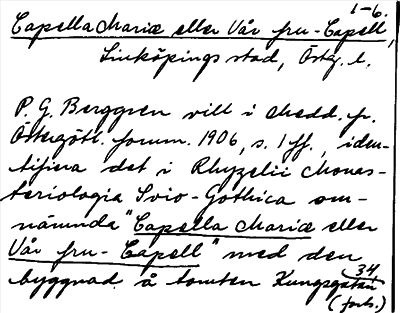 1-6.
Capella Mariæ eller Vår fru-Capell,
Linköpings stad, Östg. l.
P. G. Berggren vill i Medd. fr.
Östergötl. fornm. 1906, s. 1 ff., iden-
tifiera det i Rhyzelii Monas-
teriologia Svio-Gothica om-
nämnda "Capella Mariæ eller
Vår fru-Capell" med den
byggnad å tomten Kungsgatan 34
(forts.)